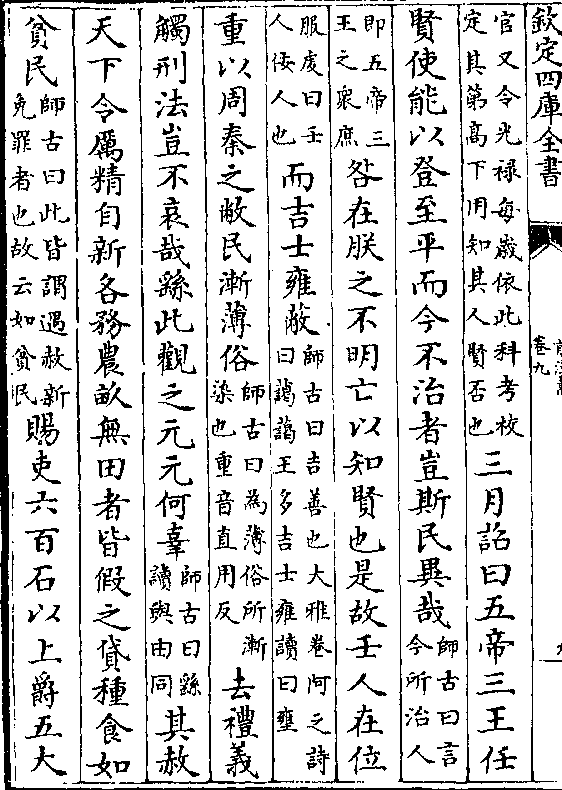 欽定四庫全書
卷九
官又令光祿每歲依此科考校
定其第高下用知其人賢否也
三月詔曰五帝三王任
賢使能以登至平而今不治者豈斯民異哉
師古曰言
今所治人
即五帝三
王之衆庶
咎在朕之不明亡以知賢也是故壬人在位
服虔曰壬
人佞人也
而吉士雍蔽
師古曰吉善也大雅卷阿之詩
曰藹藹王多吉士雍讀曰壅
重以周秦之敝民漸薄俗
師古曰為薄俗所漸
染也重音直用反
去禮義
觸刑法豈不哀哉繇此觀之元元何辜
師古曰繇
讀與由同
其赦
天下令厲精自新各務農畝無田者皆假之貸種食如
貧民
師古曰此皆謂遇赦新
免罪者也故云如貧民
賜吏六百石以上爵五大